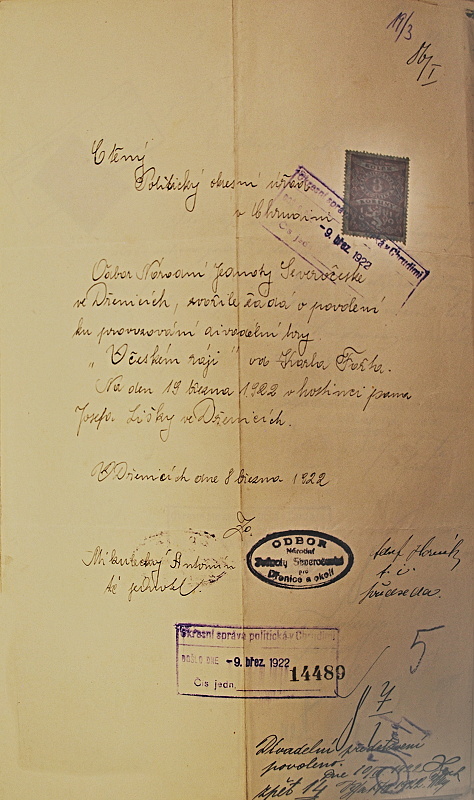 19/3
86/I
Ctěný
Politický okresní úřad
v Chrudimi
KOLEK
Okresní správa politická v Chrudimi
-9. břez. 1922
Čís. jedn.
Odbor Národní Jednoty Severočeské
ve Dřenicích, svořile žádá o povolení
ku provozování divadelní hry
„V českém ráji" od Karla Fořta.
Na den 19 března 1922 v hostinci pana
Josefa Lišky ve Dřenicích.
V Dřenicích dne 8 března 1922
Za
ODBOR
Národní
Jednoty Severočeské
pro
Dřenice a okolí
Mikulecký Antonín
Josef
t. č.
jednatel.
předseda.
Okresní správa politická v Chrudimi
DOŠLO DNE -9. břez. 1922
Čís. jedn. 14489
5
7
Divadelní představení
povoleno.
zpět 14